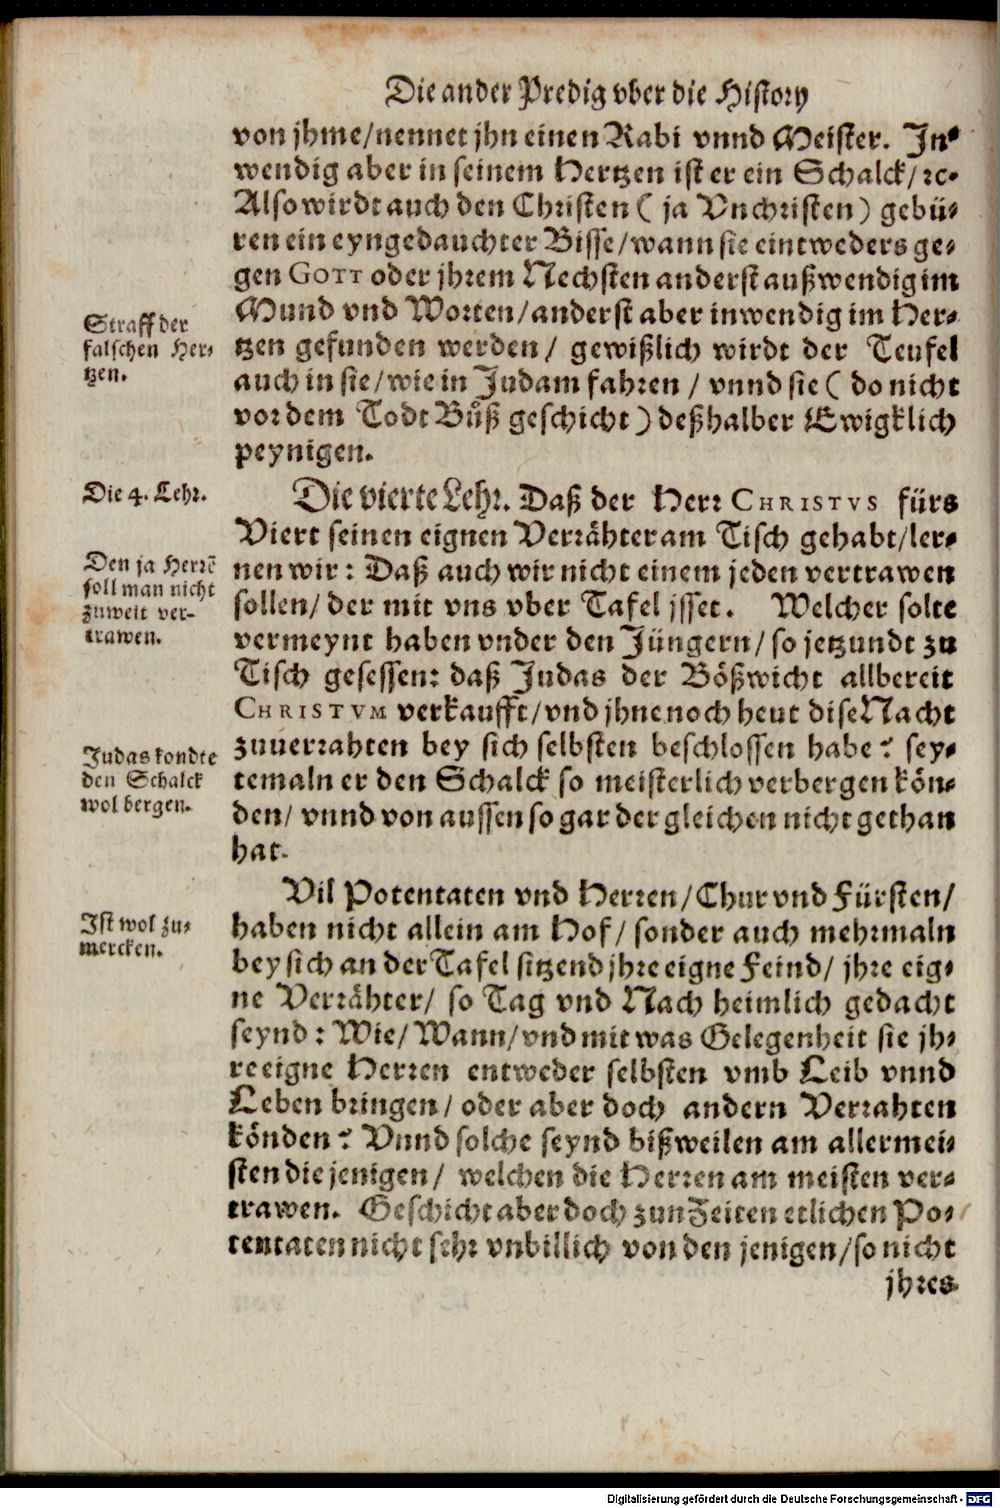 Die ander Predig vber die History
von jhme/nennet jhn einen Rabi vnnd Meister. In-
wendig aber in seinem Hertzen ist er ein Schalck/ ꝛc.
Also wirdt auch den Christen ( ja Vnchristen ) gebü-
ren ein eyngedauchter Bisse/wann sie eintweders ge-
gen GOTT oder jhrem Nechsten anderst außwendig im
Mund vnd Worten/anderst aber inwendig im Her-
Straff der
falschen Her-
tzen.
tzen gefunden werden/ gewißlich wirdt der Teufel
auch in sie/wie in Judam fahren / vnnd sie ( do nicht
vor dem Todt Bůß geschicht ) deßhalber Ewigklich
peynigen.
Die 4. Lehr.
Die vierte Lehr. Daß der Herr CHRISTVS fürs
Viert seinen eignen Verrähter am Tisch gehabt/ler-
Den ja Herrẽ
soll man nicht
zuweit ver-
trawen.
nen wir: Daß auch wir nicht einem jeden vertrawen
sollen/ der mit vns vber Tafel jsset. Welcher solte
vermeynt haben vnder den Jüngern/ so jetzundt zu
Tisch gesessen: daß Judas der Bößwicht allbereit
CHRISTVM verkaufft/vnd jhne noch heut dise Nacht
Judas kondte
den Schalck
wol bergen.
zuuerrahten bey sich selbsten beschlossen habe? sey-
temaln er den Schalck so meisterlich verbergen kön-
den/ vnnd von aussen so gar dergleichen nicht gethan
hat.
Vil Potentaten vnd Herren/Chur vnd Fürsten/
Ist wol zu-
mercken.
haben nicht allein am Hof/ sonder auch mehrmaln
bey sich an der Tafel sitzend jhre eigne Feind/ jhre eig-
ne Verrähter/ so Tag vnd Nach heimlich gedacht
seynd: Wie/ Wann/vnd mit was Gelegenheit sie jh-
re eigne Herren entweder selbsten vmb Leib vnnd
Leben bringen/ oder aber doch andern Verrahten
könden? Vnnd solche seynd bißweilen am allermei-
sten die jenigen/ welchen die Herren am meisten ver-
trawen. Geschicht aber doch zun Zeiten etlichen Po-
tentaten nicht sehr vnbillich von den jenigen/so nicht
jhres
Digitalisierung gefördert durch die Deutsche Forschungsgemeinschaft - DFG